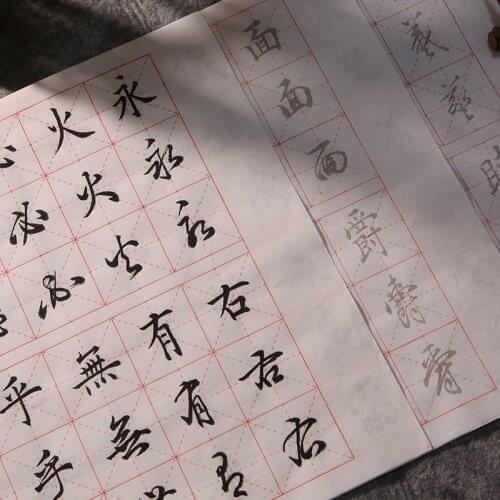 羲羲
面面面爵爵爵
永永永
火火火
必必
右右右
有有有
無無
乎乎